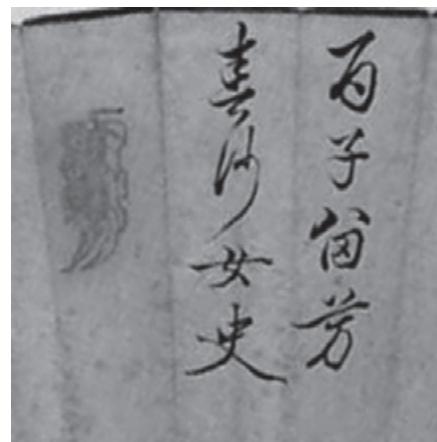 百子留芳
喜沙女史